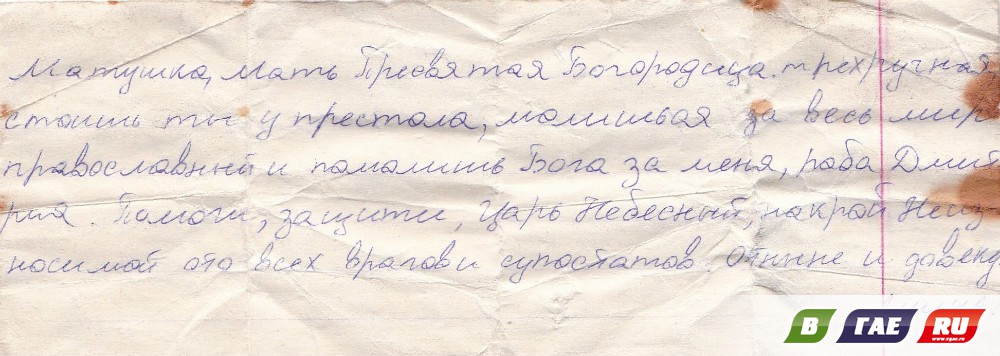 Матушка, Мать Пресвятая Богородица. трехручная,
стоишь ты у престола, молишьая за весь мир
православный и помолишь Бога за меня, раба Дмит
рия. Помоги, защити, Царь Небесный, накрой Неиз
носимой ото всех врагов и супостатов. Отныне и довеку
В ГАЕ RU
www.vgae.ru